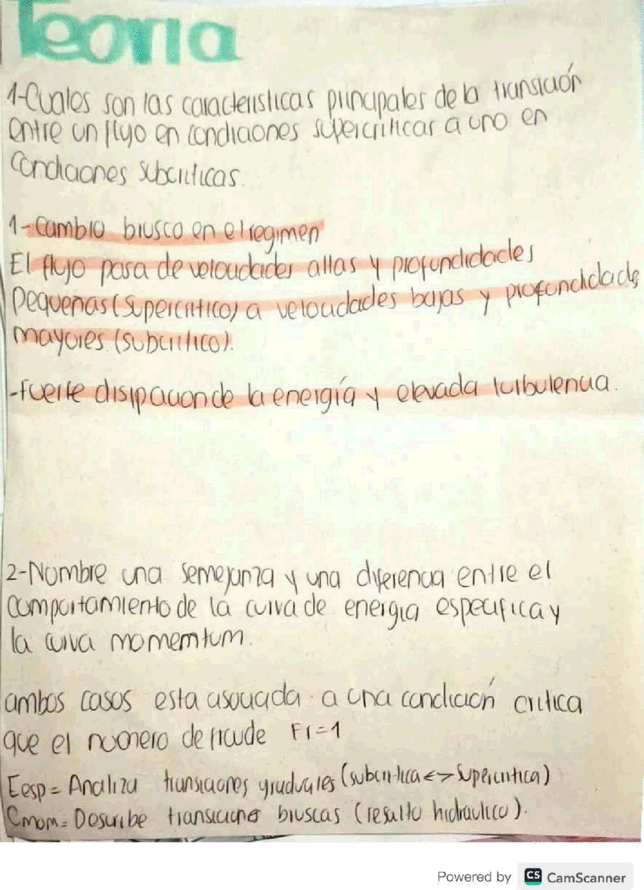 Teoria
1-Cuales son las caracteristicas principales de la transición
entre un flujo en condiciones supercriticas a uno en
condiciones subcriticas.
1-Cambio brusco en el regimen
El flujo pasa de velocidades altas y profundidades
pequeñas (supercritico) a velocidades bajas y profundidade
mayores (subcritico).
-fuerte disipacion de la energía y elevada turbulencia.
2-Nombre una semejanza y una diferencia entre el
comportamiento de la curva de energia especifica y
la curva momemtum.
ambos casos esta asociada a una condición critica
que el numero de froude Fr=1
Eesp = Analiza transiciones graduales (subcritica <-> supercritica)
Cmom = Describe transiciones bruscas (resalto hidraulico).
Powered by CS CamScanner